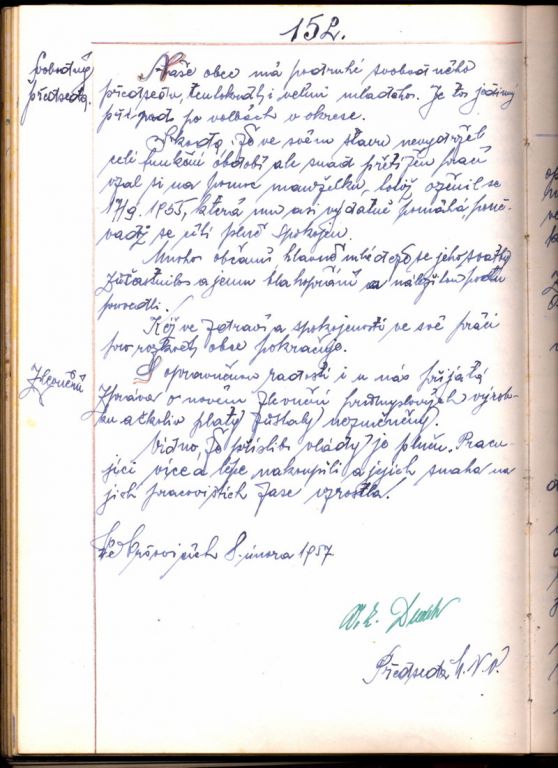 152.
Svobodný
předseda.
Naše obec má podruhé svobodného
předsedu, tentokrát i velmi mladého. Je to jediný
případ po volbách v okrese.
Škoda, že ve svém stavu nevydržel
celé funkční období ale snad přetížen prací
vzal si na pomoc manželku, totiž oženil se
17/9. 1955, která mu asi vydatně pomáhá poně-
vadž se cítí plně spokojen.
Mnoho občanů hlavně mládeže se jeho svatby
zúčastnilo a jemu blahopřání a náležitou poctu
provedli.
Kéž ve zdraví a spokojenosti ve své práci
pro rozkvět obce pokračuje.
Zlevnění
S oprávněnou radostí i u nás přijata
zpráva o novém zlevnění průmyslových výrob-
ků ačkoliv platy zůstaly nezměněny.
Vidno, že příslib vlády je plněn. Pracu-
jící více a lépe nakoupili a jejich snaha na
jich pracovištích zase vzrostla!
8. února 1957
Předseda M.N.V.